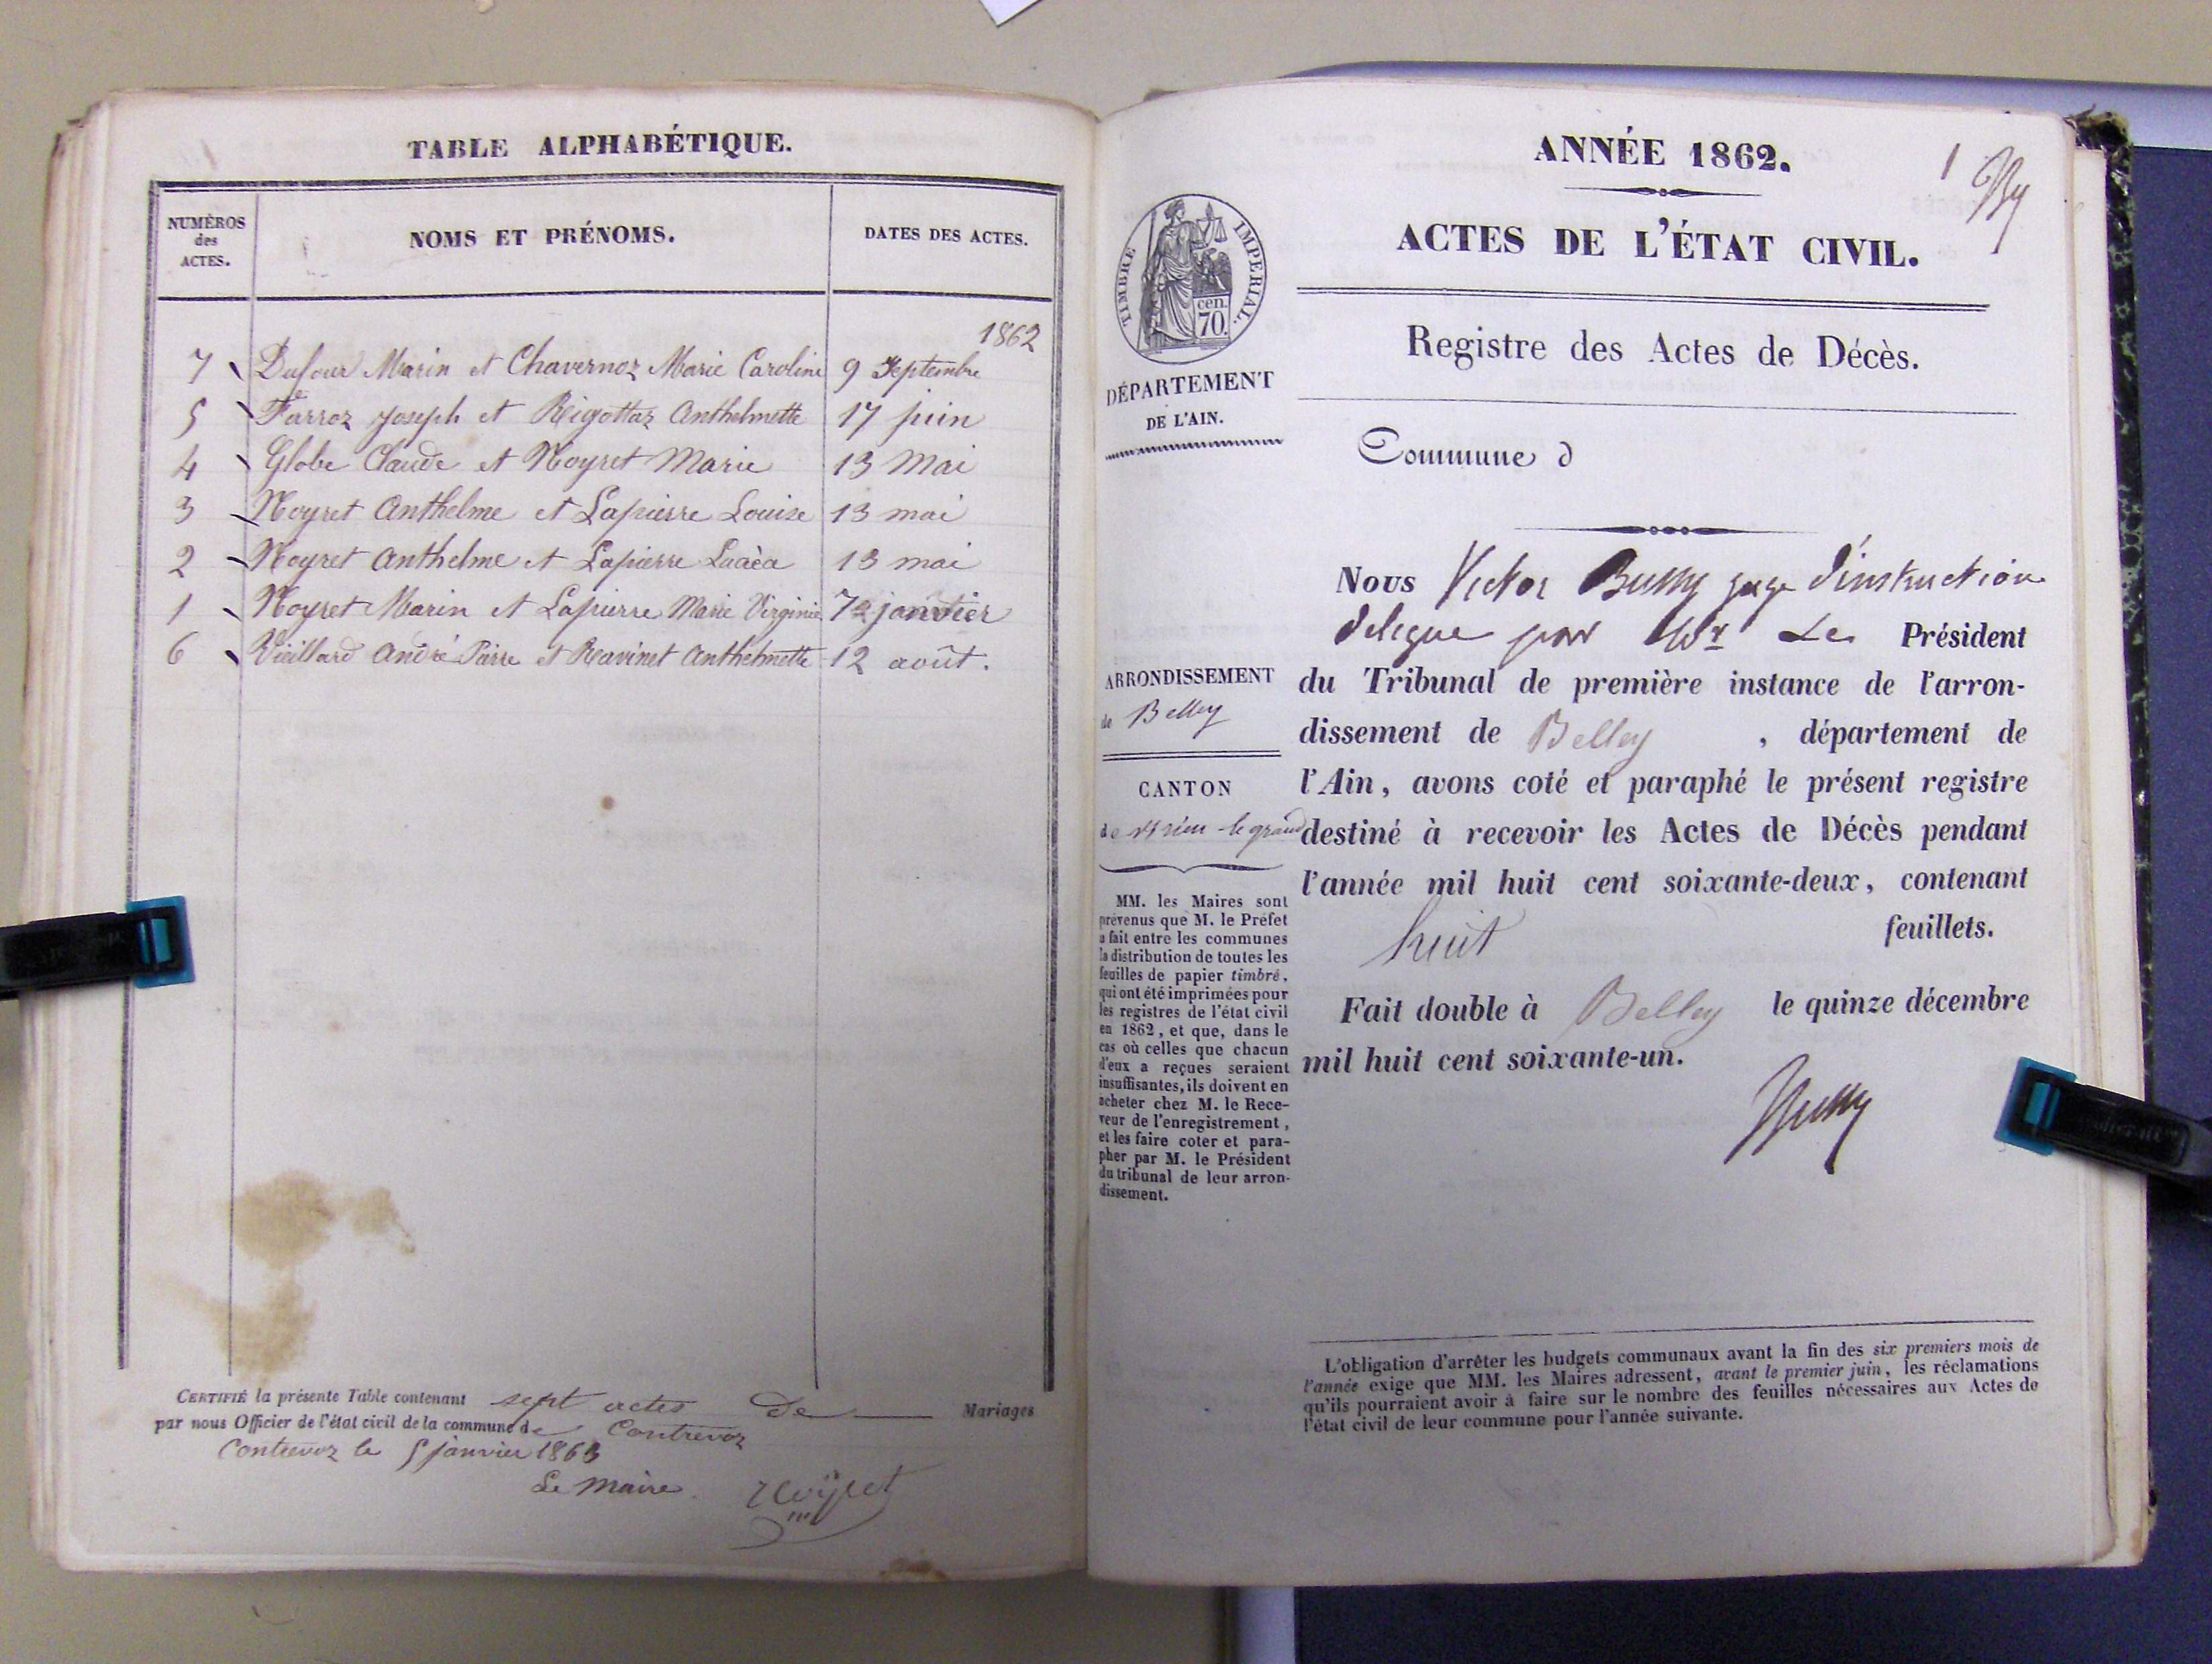 TABLE ALPHABÉTIQUE.
NUMÉROS
des
ACTES.
NOMS ET PRÉNOMS.
DATES DES ACTES.
1862
7 Dufour Marin et Chavernoz Marie Caroline 9 Septembre
5 Farroz Joseph et Rigottaz Anthelmette 17 juin
4 Globe Claude et Noyret Marie 13 Mai
3 Noyret Anthelme et Lapierre Louise 13 mai
2 Noyret Anthelme et Lapierre 13 mai
1 Noyret Marin et Lapierre Marie Virginie 7 janvier
6 Vieillard André Pierre et Ravinet Anthelmette 12 août.
CERTIFIÉ la présente Table contenant sept actes de Mariages
par nous Officier de l'état civil de la commune de Contrevoz
Contrevoz le 5 janvier 1863
Le Maire
Noyret
ANNÉE 1862.
1 By
ACTES DE L'ÉTAT CIVIL.
TIMBRE IMPÉRIAL.
cen.
70.
Registre des Actes de Décès.
DÉPARTEMENT
DE L'AIN.
Commune d
Nous Victor Bussy juge d'instruction
délégué par Mr Le Président
du Tribunal de première instance de l'arron-
dissement de Belley , département de
l'Ain, avons coté et paraphé le présent registre
destiné à recevoir les Actes de Décès pendant
l'année mil huit cent soixante-deux, contenant
huit feuillets.
Fait double à Belley le quinze décembre
mil huit cent soixante-un.
Bussy
ARRONDISSEMENT
de Belley
CANTON
de Virieu-le-grand
MM. les Maires sont
prévenus que M. le Préfet
a fait entre les communes
la distribution de toutes les
feuilles de papier timbré,
qui ont été imprimées pour
les registres de l'état civil
en 1862, et que, dans le
cas où celles que chacun
d'eux a reçues seraient
insuffisantes, ils doivent en
acheter chez M. le Rece-
veur de l'enregistrement,
et les faire coter et para-
pher par M. le Président
du tribunal de leur arron-
dissement.
L'obligation d'arrêter les budgets communaux avant la fin des six premiers mois de
l'année exige que MM. les Maires adressent, avant le premier juin, les réclamations
qu'ils pourraient avoir à faire sur le nombre des feuilles nécessaires aux Actes de
l'état civil de leur commune pour l'année suivante.